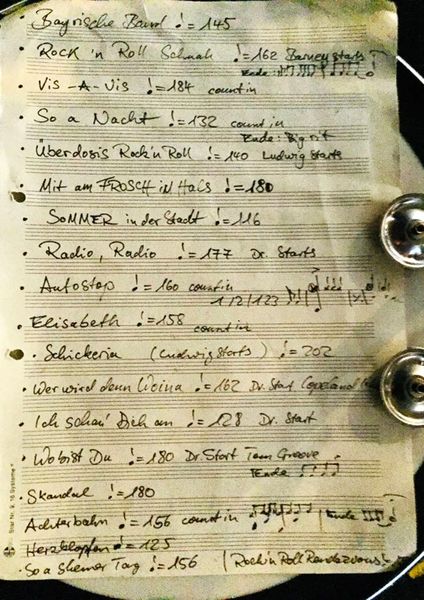 • Bayrische Band ♩=145
• ROCK 'n Roll Schuah ♩=162 Barney starts
Ende:
• Vis-A-Vis ♩=184 count in
• So a Nacht ♩=132 count in
Ende: Big rit
• Überdosis Rock'n Roll ♩=140 Ludwig Starts
• Mit am FROSCH im Hals ♩=180
• SOMMER in der Stadt ♩=116
• Radio, Radio ♩=177 Dr. Starts
• Autostop ♩=160 count in
1/2/123
• Elisabeth ♩=158
count in
• Schickeria (Ludwig Starts) ♩=202
• Wer wird denn Woina ♩=162 Dr. Start Copeland
• Ich schau' Dich an ♩=128 Dr. Start
• Wo bist Du ♩=180 Dr. Start Tom Groove
Ende
• Skandal ♩=180
Achterbahn ♩=156 count in Ende
Herzklopfen ♩=125
• So a Tag ♩=156 (Rock'n Roll Rendezvous)
Star Nr. 9, 16 Systeme